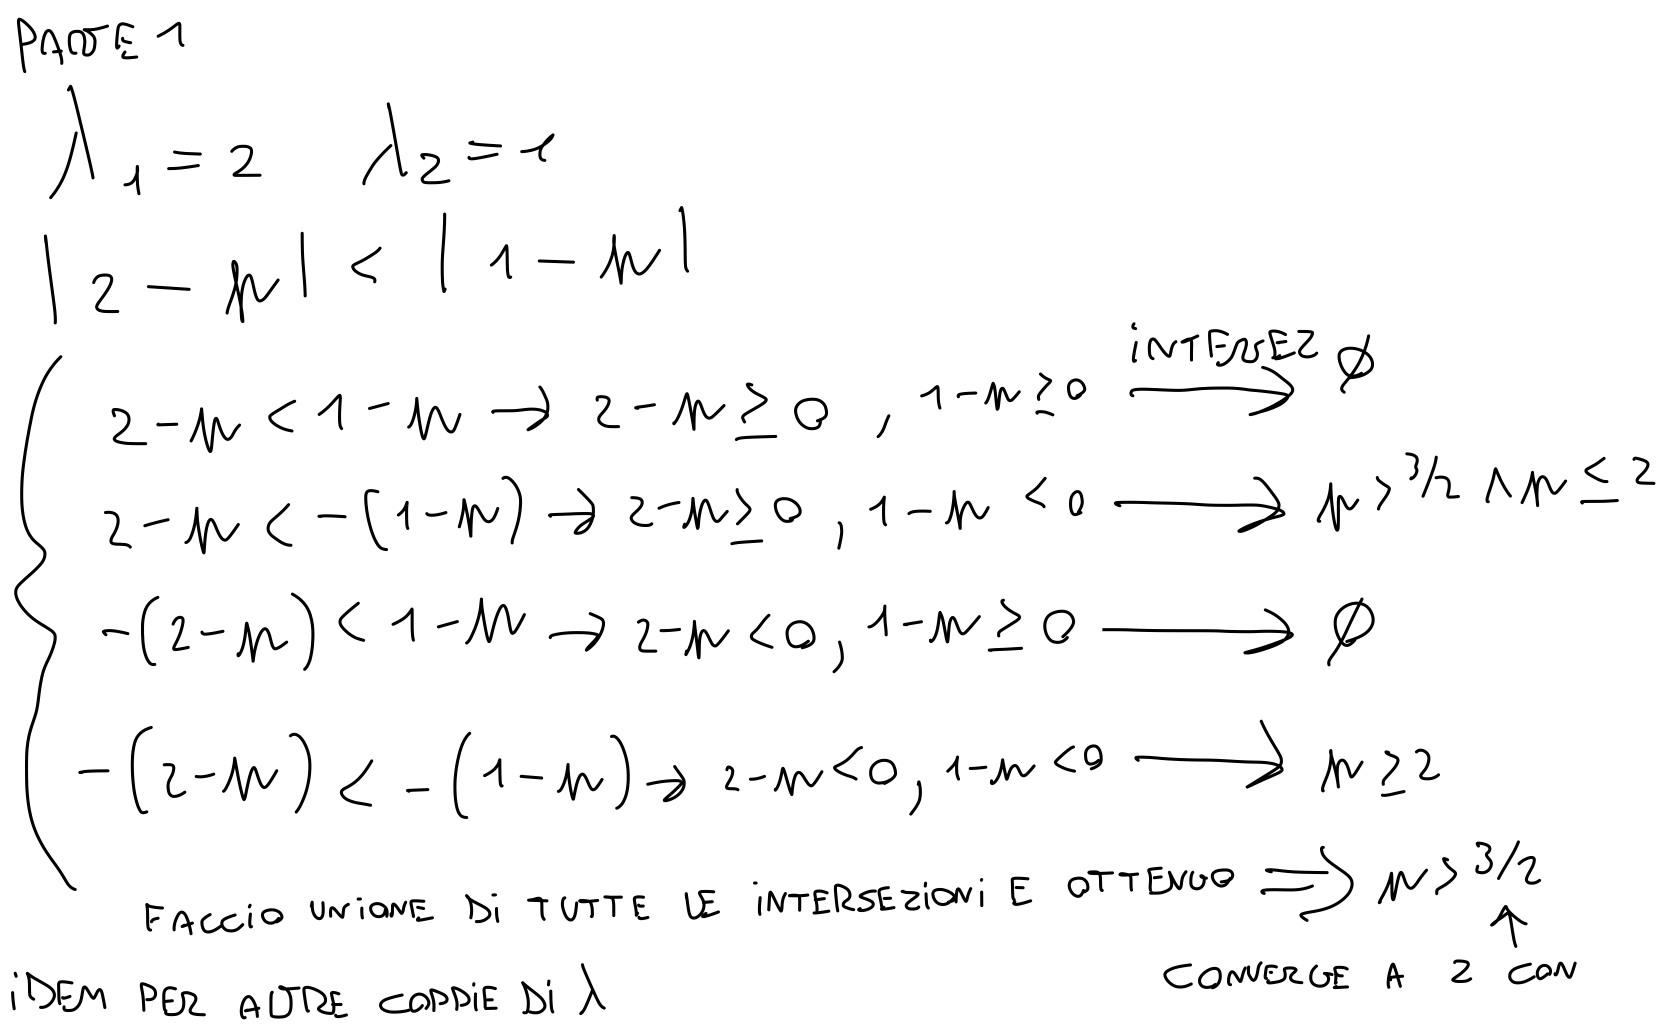 PARTE 1
λ₁ = 2 λ₂ = 1
|2 - μ| < |1 - μ|
2-μ < 1-μ → 2-μ ≥ 0, 1-μ ≥ 0 INTERSEZ → ∅
2-μ < -(1-μ) → 2-μ ≥ 0, 1-μ < 0 → μ > 3/2 ∧ μ ≤ 2
-(2-μ) < 1-μ → 2-μ < 0, 1-μ ≥ 0 → ∅
-(2-μ) < -(1-μ) → 2-μ < 0, 1-μ < 0 → μ ≥ 2
FACCIO UNIONE DI TUTTE LE INTERSEZIONI E OTTENGO ⇒ μ > 3/2
↑
CONVERGE A 2 CON
IDEM PER ALTRE COPPIE DI λ